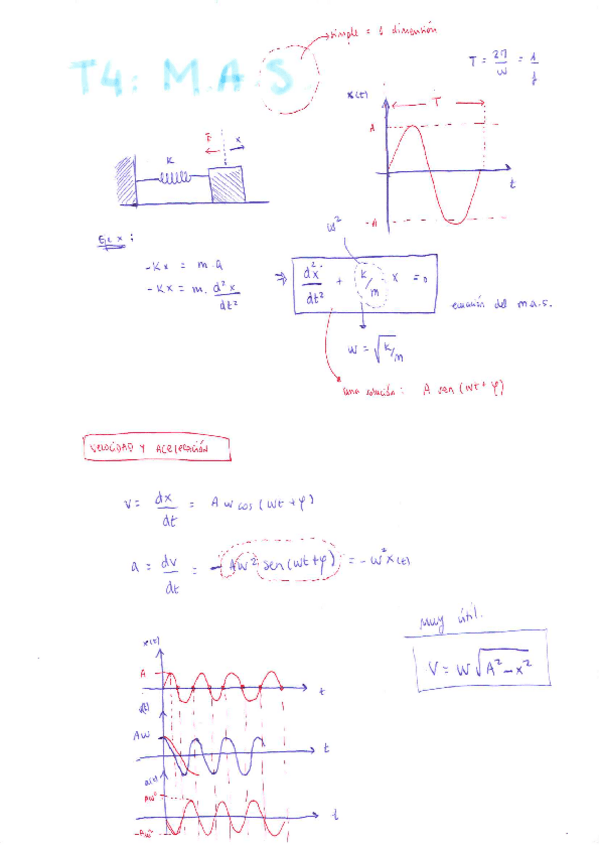 simple = 1 dimensión
T4: M.A.S.
T = 2π/w = 1/f
x(t)
T
A
t
-A
K
F
x
Eje x:
w²
-Kx = m.a
-Kx = m. d²x/dt²
=> d²x/dt² + k/m x = 0
ecuación del m.a.s.
w = √k/m
una solución: A sen (wt + φ)
VELOCIDAD Y ACELERACIÓN
v = dx/dt = A w cos (wt + φ)
a = dv/dt = - Aw² sen(wt+φ) = -w² x(t)
muy útil.
V = W√A²-x²
x(t)
A
t
v(t)
AW
t
a(t)
Aw²
t
-Aw²